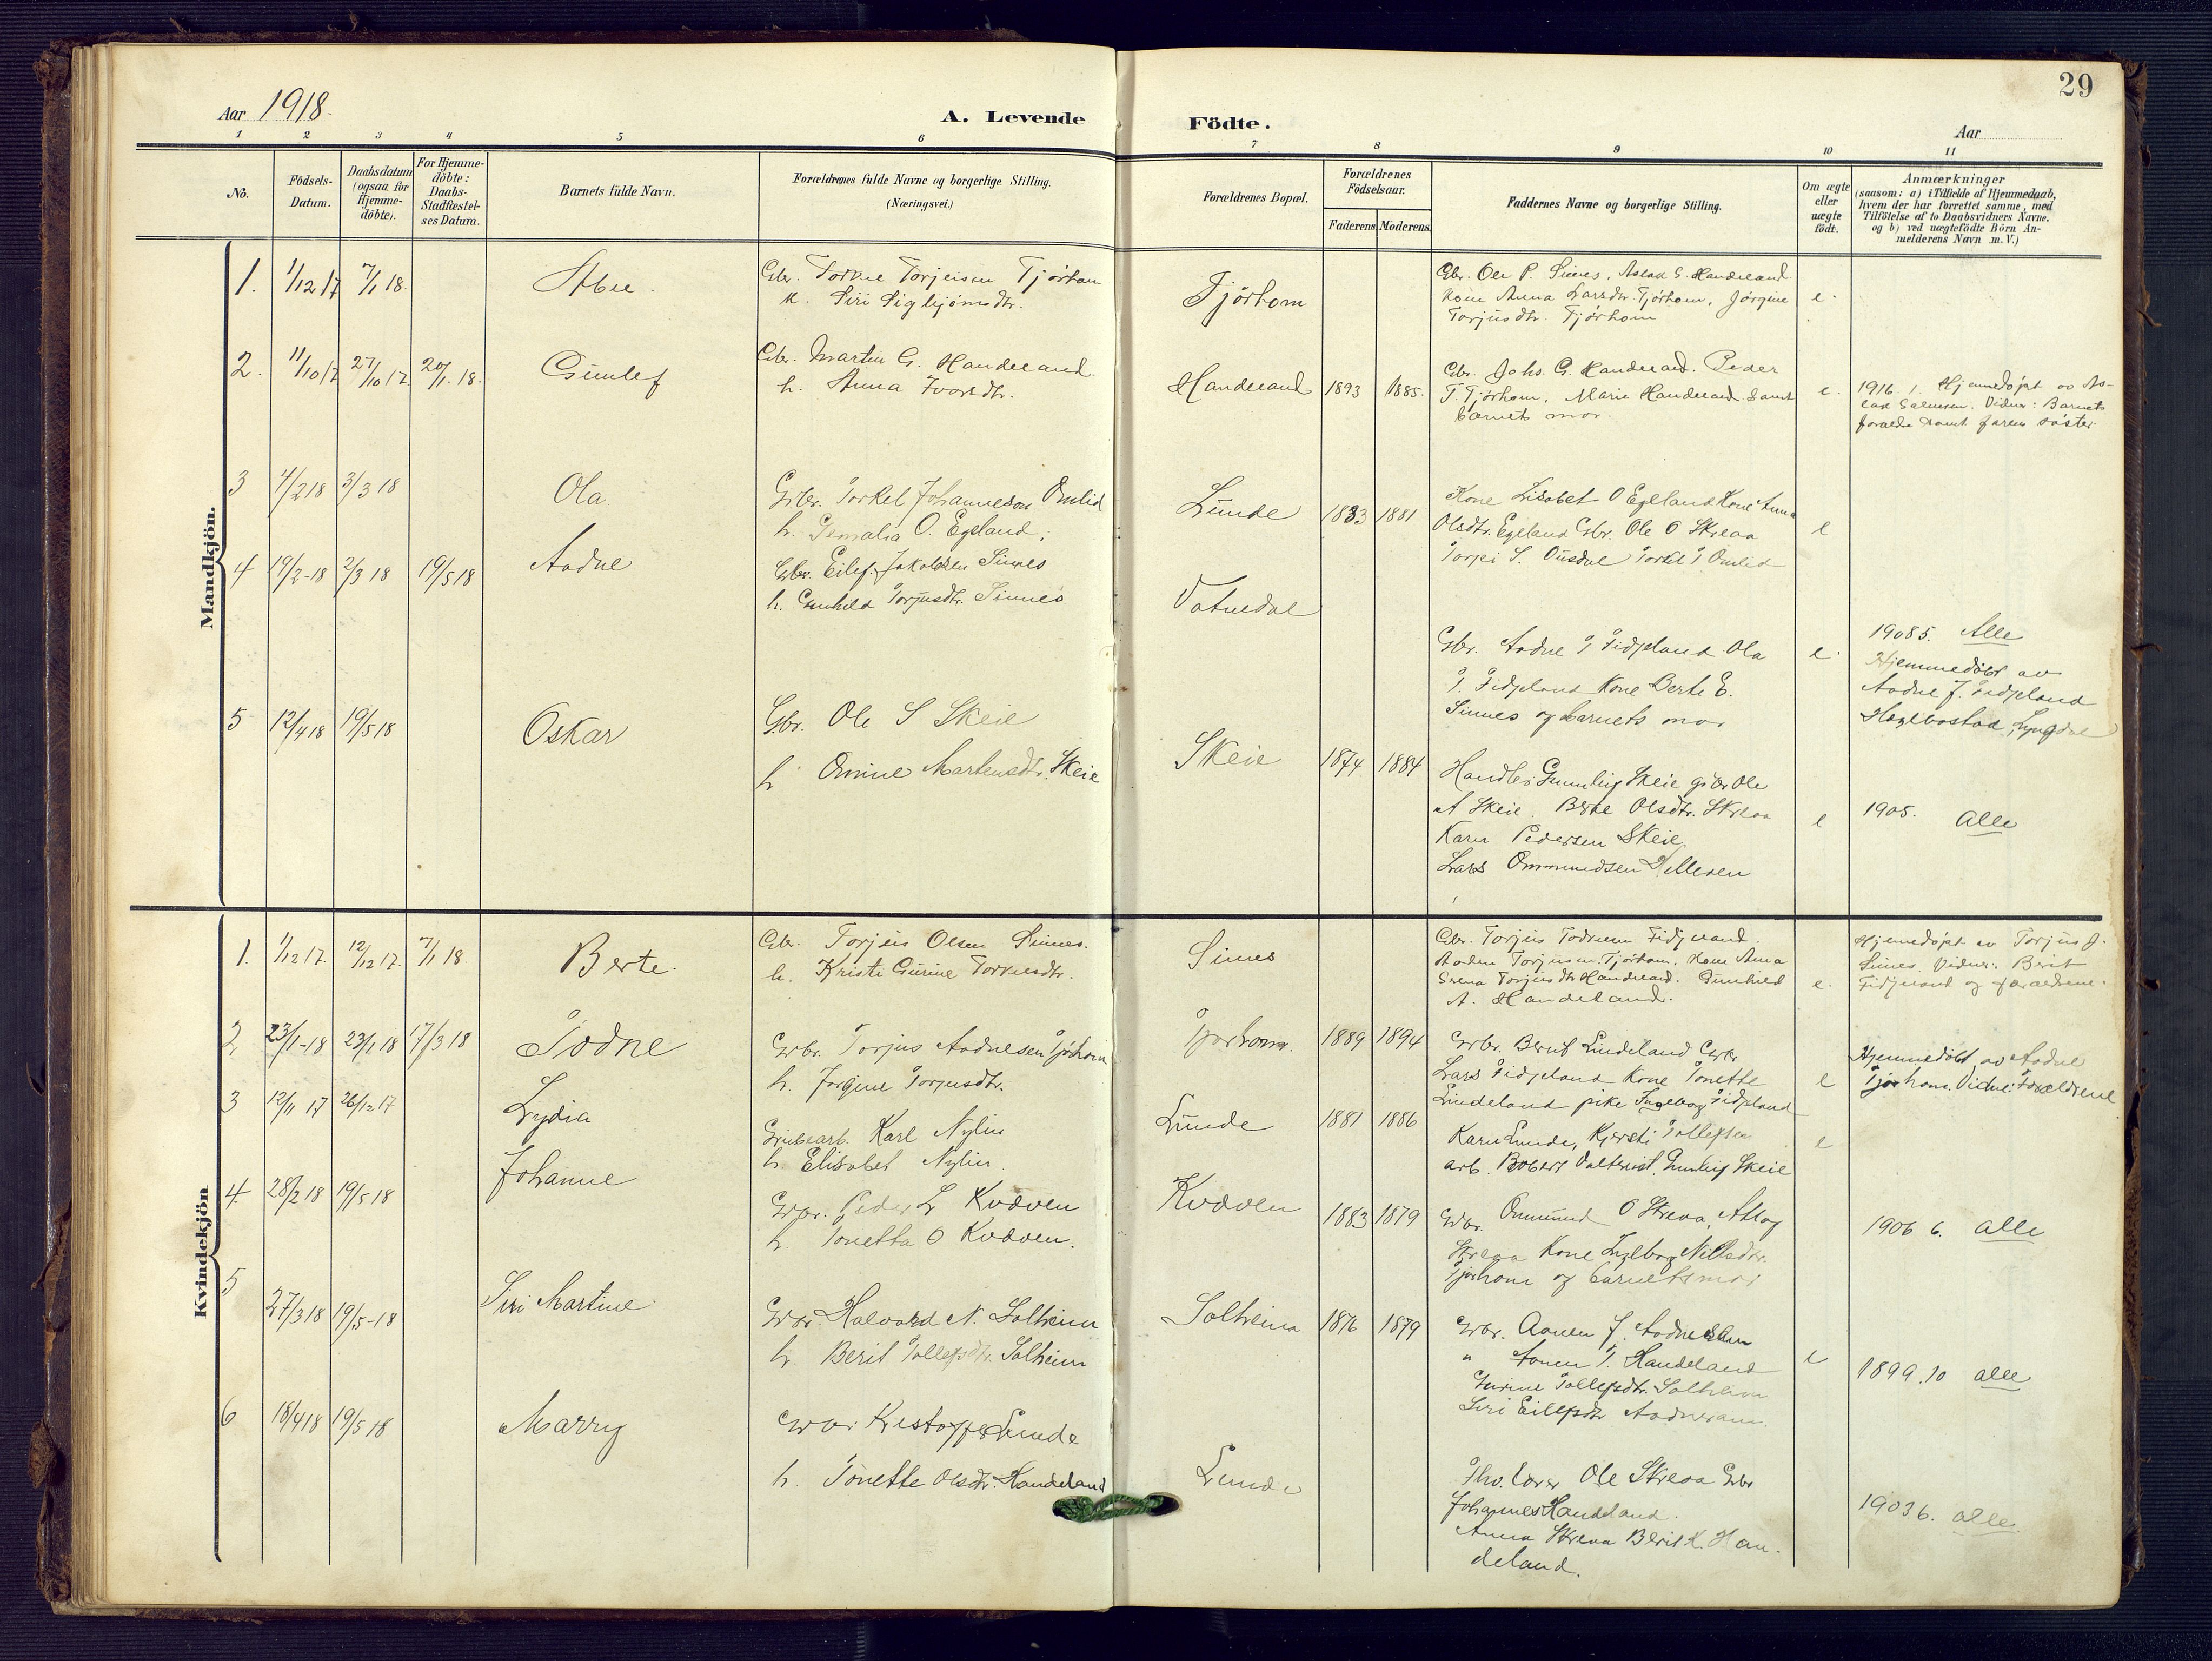 29
Aar 1918.
A. Levende
Födte.
Aar
1 2 3 4 5 6 7 8 9 10 11
No.
Födsels-
Datum.
Daabsdatum
(ogsaa for
Hjemme-
döbte).
For Hjemme-
döbte:
Daabs-
Stadfæstel-
ses Datum.
Barnets fulde Navn.
Forældrenes fulde Navne og borgerlige Stilling.
(Næringsvei.)
Forældrenes Bopæl.
Forældrenes
Födselsaar.
Faderens. Moderens.
Faddernes Navne og borgerlige Stilling.
Om ægte
eller
uægte
födt.
Anmærkninger
(saasom: a) i Tilfælde af Hjemmedaab,
hvem der har forrettet samme, med
Tilföielse af to Daabsvidners Navne.
og b) ved uægtefödte Börn An-
melderens Navn m.V.)
Mandkjön.
1. 1/12 17 7/1 18.
Gbr. Torjeisen Tjörhom
k. Siri Sigbjörnsdtr.
Tjörhom
Gbr. Ole P. Sines, Aslak G. Handeland
Kone Anna Larsdtr. Tjörhom, Jörgine
Torjusdtr. Tjörhom
e.
2. 11/10 17 27/10 17 20/1 18.
Gunlef
Gbr. Martin G. Handeland
h. Anna Ivarsdtr.
Handeland 1893 1885.
Gbr. Johs. G. Handeland. Peder
T. Tjörhom, Marie Handeland samt
barnets mor.
e.
1916 1 Hjemmedöpt av As-
lak Salvesen. Vidner: Barnets
forældre samt farens söster.
3 4/2 18 3/3 18
Ola
Gbr. Torkel Johanneson Omlid
h. O. Egeland.
Lunde 1883 1881
Kone Lisabet O Egeland Kone Anna
Olsdtr. Egeland Gbr. Ole O Skreaa
Torjei S. Ousdal Torkel T Omlid
e
4 19/2-18 2/3 18 19/5 18
Aadne
Gbr. Eilef Jakobsen Sinnes
h. Gunhild Torjusdtr. Sinnes
Vatnedal
Gbr. Aadne T Fidjeland Ola
T. Fidjeland Kone Berte E.
Sinnes og barnets mor
e.
1908 5. Alle
Hjemmedöbt av
Aadne J. Fidjeland
Hægebostad, Lyngdal
5 12/4 18 19/5 18
Oskar
Gbr. Ole S Skeie
h. Omine Martensdtr. Skeie
Skeie 1874 1884
Handler Gunleif Skeie gbr Ole
A Skeie. Berte Olsdtr. Skreaa
Karen Pedersen Skeie
Lars Ommundsen
e
1905. Alle
Kvindekjön
1. 1/12 17. 12/12 17. 7/1 18.
Berte.
Gbr. Torjus Olsen Sines.
h. Kristi Gurine
Sines
Gbr. Torjus Fidjeland
Torjusen Tjörhom. Kone Anna
Serena Torjusdtr Handeland. Gunhild
A. Handeland.
e.
Hjemmedöpt av Torjus J.
Sines. Vidner: Berit
Fidjeland og forældrene.
2. 23/1-18 23/1 18 17/3 18
Todne
Gbr. Torjus Aadnesen Tjörhom
h. Jorgine Torjusdtr.
Tjorhom. 1889 1894
Gbr. Bernt Lindeland Gbr
Lars Fidjeland Kone Tonette
Lindeland pike Ingeborg Fidjeland
e
Hjemmedöbt av Aadne
Tjörhom. Vidne: Forældrene
3 12/11 17 26/12 17
Lydia
Grubearb. Karl Nylin
h. Elisabet Nylin
Lunde 1881 1886
Karen Lunde, Kjersti Tollefsen
arb. Robert Gunleif Skeie
e
4. 28/2 18 19/5 18
Johanne
Gbr. Peder L Kvæven
h. Tonetta O Kvæven.
Kvæven 1883 1879
Gbr. Ommund O Skreaa, Aslag
Skreaa Kone Ingeborg Nilsdtr.
Tjørhom og barnets mor
1906 6. alle
5 27/3 18 19/5-18
Siri Martine
Gbr. Halvard N. Solheim
h. Berit Tollefsdtr. Solheim
Solheim 1876 1879
Gbr. Aanen J. Aadneram
" Aanen T. Handeland
Gurine Tollefsdtr. Solheim
Siri Eilefsdtr Aadneram.
e
1899.10 alle
6 18/4 18 19/5 18
Marry
Gbr. Kristoffer Lunde
h. Tonette Olsdtr. Handeland
Lunde
Ole Skreaa Gbr
Johannes Handeland.
Anna Skreaa Berit K. Han-
deland.
1903 6. alle